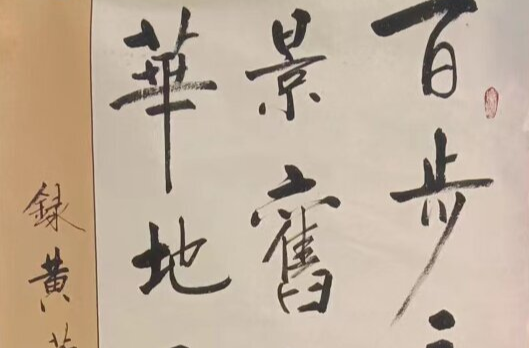 百步
景舊
華地
録黄